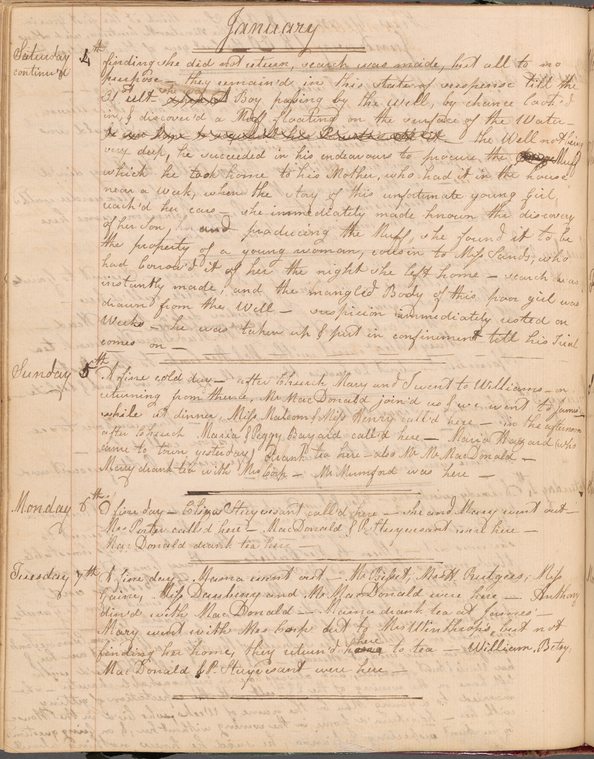 January
Saturday 4th finding she did not return, search was made, but all to no
continu'd purpose – they remain'd in this state of suspense till the
31st ult when a Boy passing by the well, by chance look'd
in, & discover'd a Muff floating on the surface of the Water –
the Well not being
very deep, he succeeded in his endeavours to procure the Muff
which he took home to his Mother, who had it in the house
near a week, when the story of this unfortunate young girl
reach'd her ears – she immediately made known the discovery
of her son, and producing the Muff, she found it to be
the property of a young woman, cousin to Miss Sands, who
had borrow'd it of her the night she left home – search was
instantly made, and the mangled Body of this poor girl was
drawn from the Well – suspicion immediately rested on
Weeks – he was taken up & put in confinement till his Trial
comes on –
Sunday 5th A fine cold day – after Church Mary and I went to Williams – on
returning from thence, Mr MacDonald join'd us & we went to James –
while at dinner Miss Malcom & Miss Henry call'd here – in the afternoon
after Church Maria & Peggy Bayard call'd here – Maria Hazard (who
came to town yesterday) drank tea here – also Mr MacDonald –
Mary drank tea with Mrs – Mr Mumford was here –
Monday 6th A fine day – Eliza Stuyvesant call'd here – she and Mary went out –
Mrs Porter call'd here – MacDonald & P. Stuyvesant were here –
MacDonald drank tea here –
Tuesday 7th A fine day – Mama went out – Mr Bisset, Mrs H. Rutgers, Miss
Miss Dansbury and Mr MacDonald were here – Anthony
din'd with MacDonald – drank tea at James –
Mary went with Mrs out to Mrs Winthrop's, but not
finding her home, they return'd here to tea – William, Betsy,
MacDonald & P. Stuyvesant were here –